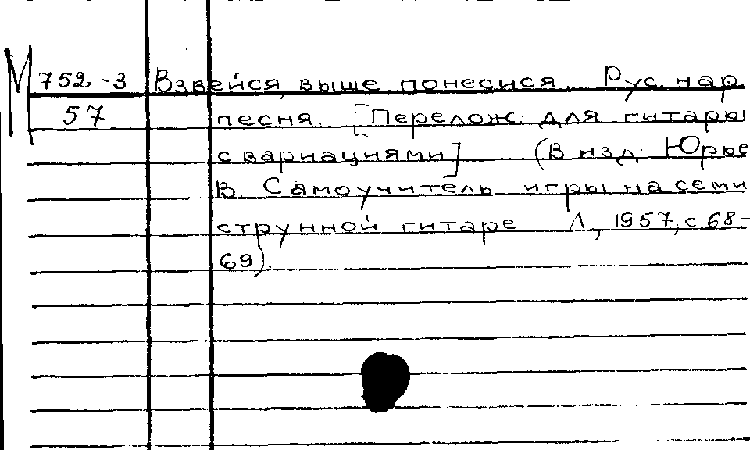 М 752-3 Взвейся, выше понесися. Рус. нар.
57 песня. [Перелож. для гитары
с вариациями] (В изд. Юрье
В. Самоучитель игры на семи
струнной гитаре Л., 1957, с. 68-
69)